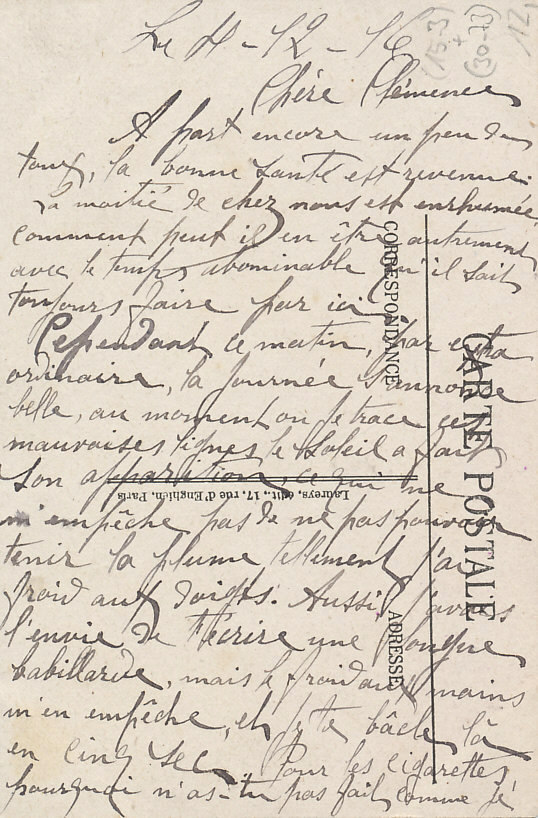 Le 4-12-16
(15-3)
+
(30-73)
12,
Chère Clémence
A part encore un peu de
toux, la bonne santé est revenue.
La moitié de chez nous est enrhumée,
comment peut il en être autrement
avec le temps abominable qu'il sait
toujours faire par ici.
Cependant ce matin, par extra
ordinaire, la journée s'annonce
belle, au moment où je trace ces
mauvaises lignes le soleil a fait
son apparition, ce qui ne
m'empêche pas de ne pas pouvoir
tenir la plume tellement j'ai
froid aux doigts. Aussi, j'avais
l'envie de t'écrire une longue
babillarde, mais le froid aux mains
m'en empêche, et j'te bâcle là
en cinq sec. Pour les cigarettes,
pourquoi n'as-tu pas fait comme je
CARTE POSTALE
CORRESPONDANCE
ADRESSE
Laureys, édit., 17, rue d'Enghien, Paris